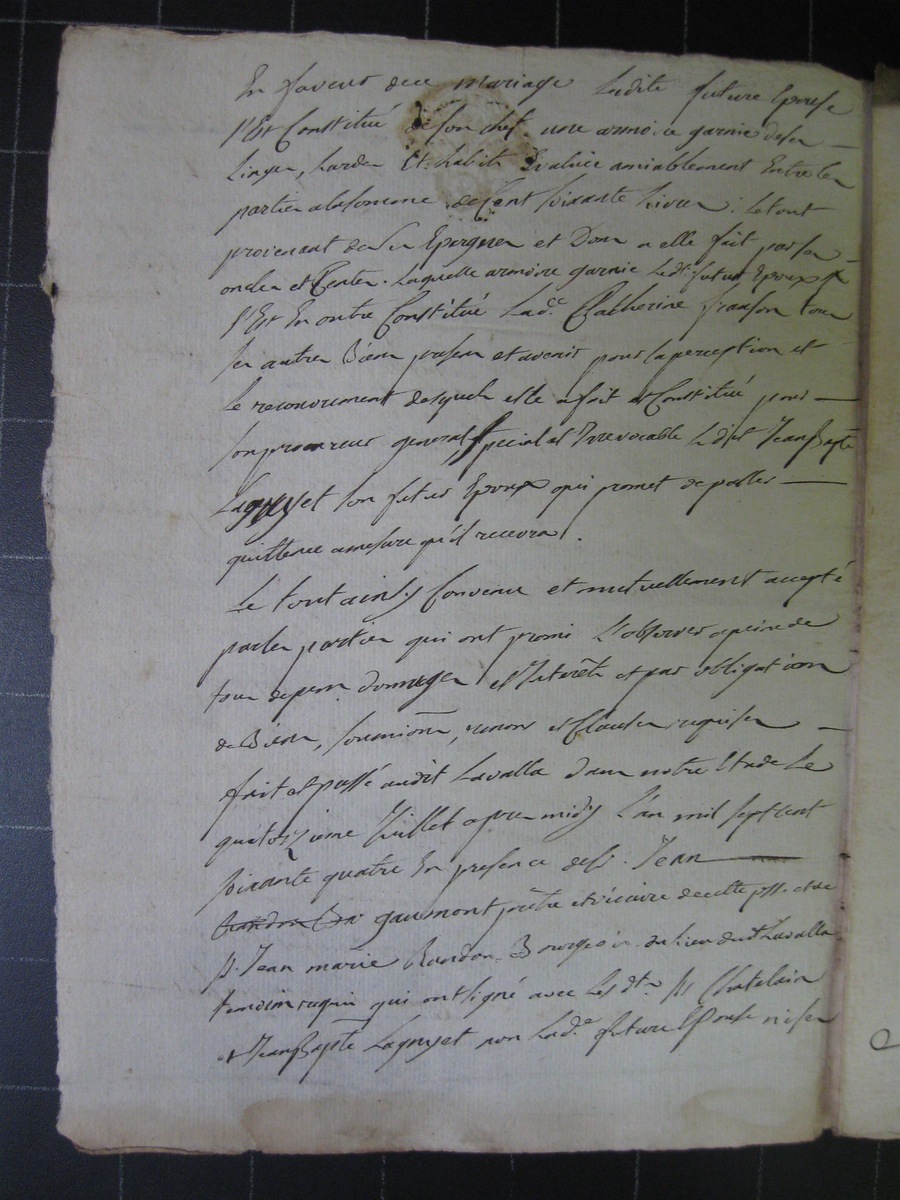 En faveur dece mariage Ladite future Epouse
s'Est Constitué de son chef une armoire garnie deses
Linges, hardes Et habits Evaluée amiablement Entre les
parties alasomme de Cent soixante Livres : Le tout
provenant de ses Epargnes et Dons a elle fait par ses
oncles et Tentes. Laquelle armoire garnie Led.t futur Epoux
s'Est En outre Constitué Lad.e Catherine franson tous
ses autres Biens presens et avenir pour la perception et
Le recouvrement desquels elle a fait et Constitué pour
son procureur general, special et Irrevocable Ledit Jean Bapte
Laguyet son futur Epoux qui promet de passer
quittance amesure qu'il recevra.
Le tout ainsy Convenu et mutuellement accepté
par les parties qui ont promis L'observer a peine de
tous depens dommages et Interêts et par obligation
de Biens, soumions, renons et Clauses requises
fait et passé audit Lavalla dans notre Etude Le
quatorzieme Juillet apres midy L'an mil sept cent
soixante quatre En presence de Sr. Jean
gaumont prêtre et vicaire de cette psse. et de
Sr. Jean marie Bandon Bourgeois du lieu dudt Lavalla
temoins requis qui ont signé avec Lesdts Srs Chatelain
et Jean Bapte Laguyet non Lad.e future Epouse ni ses